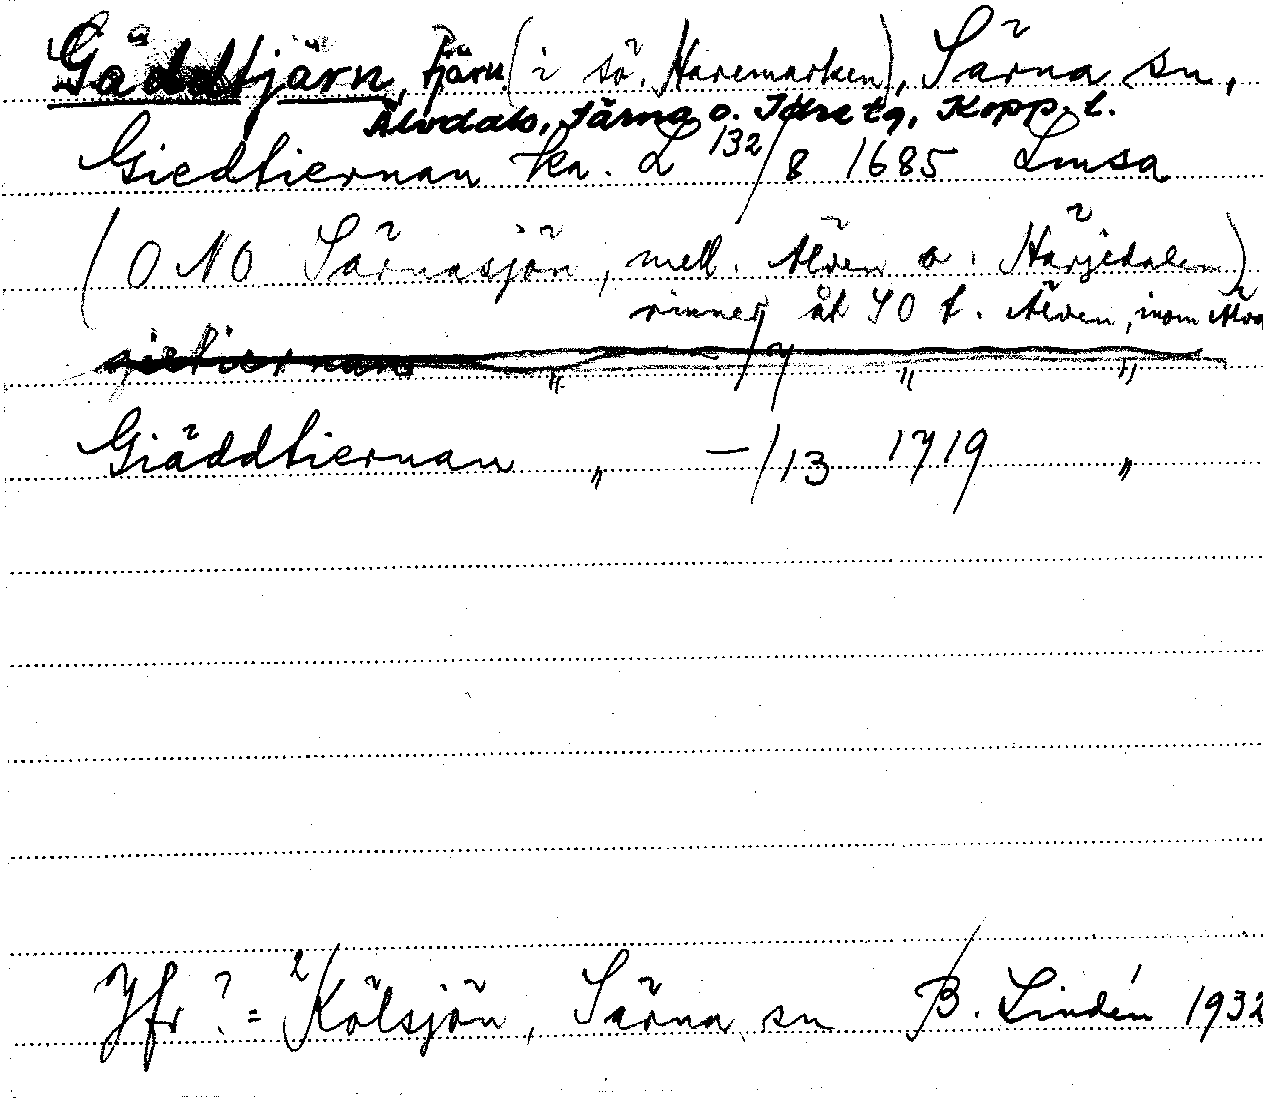 Gäddtjärn, tjärn (i sö. Haremarken), Särna sn,
Älvdals, Särna o. Idre tg, Kopp. l.
Giedtiernan ka. L 132/8 1685 Lmsa
(ONO Särnasjön, mell. Älven o. Härjedalen)
rinner åt SO t. Älven, inom Älvd
" /7 " "
Giäddtiernan " —/13 1719 "
Jfr ? = 2/Kölsjön, Särna sn B. Lindén 1932